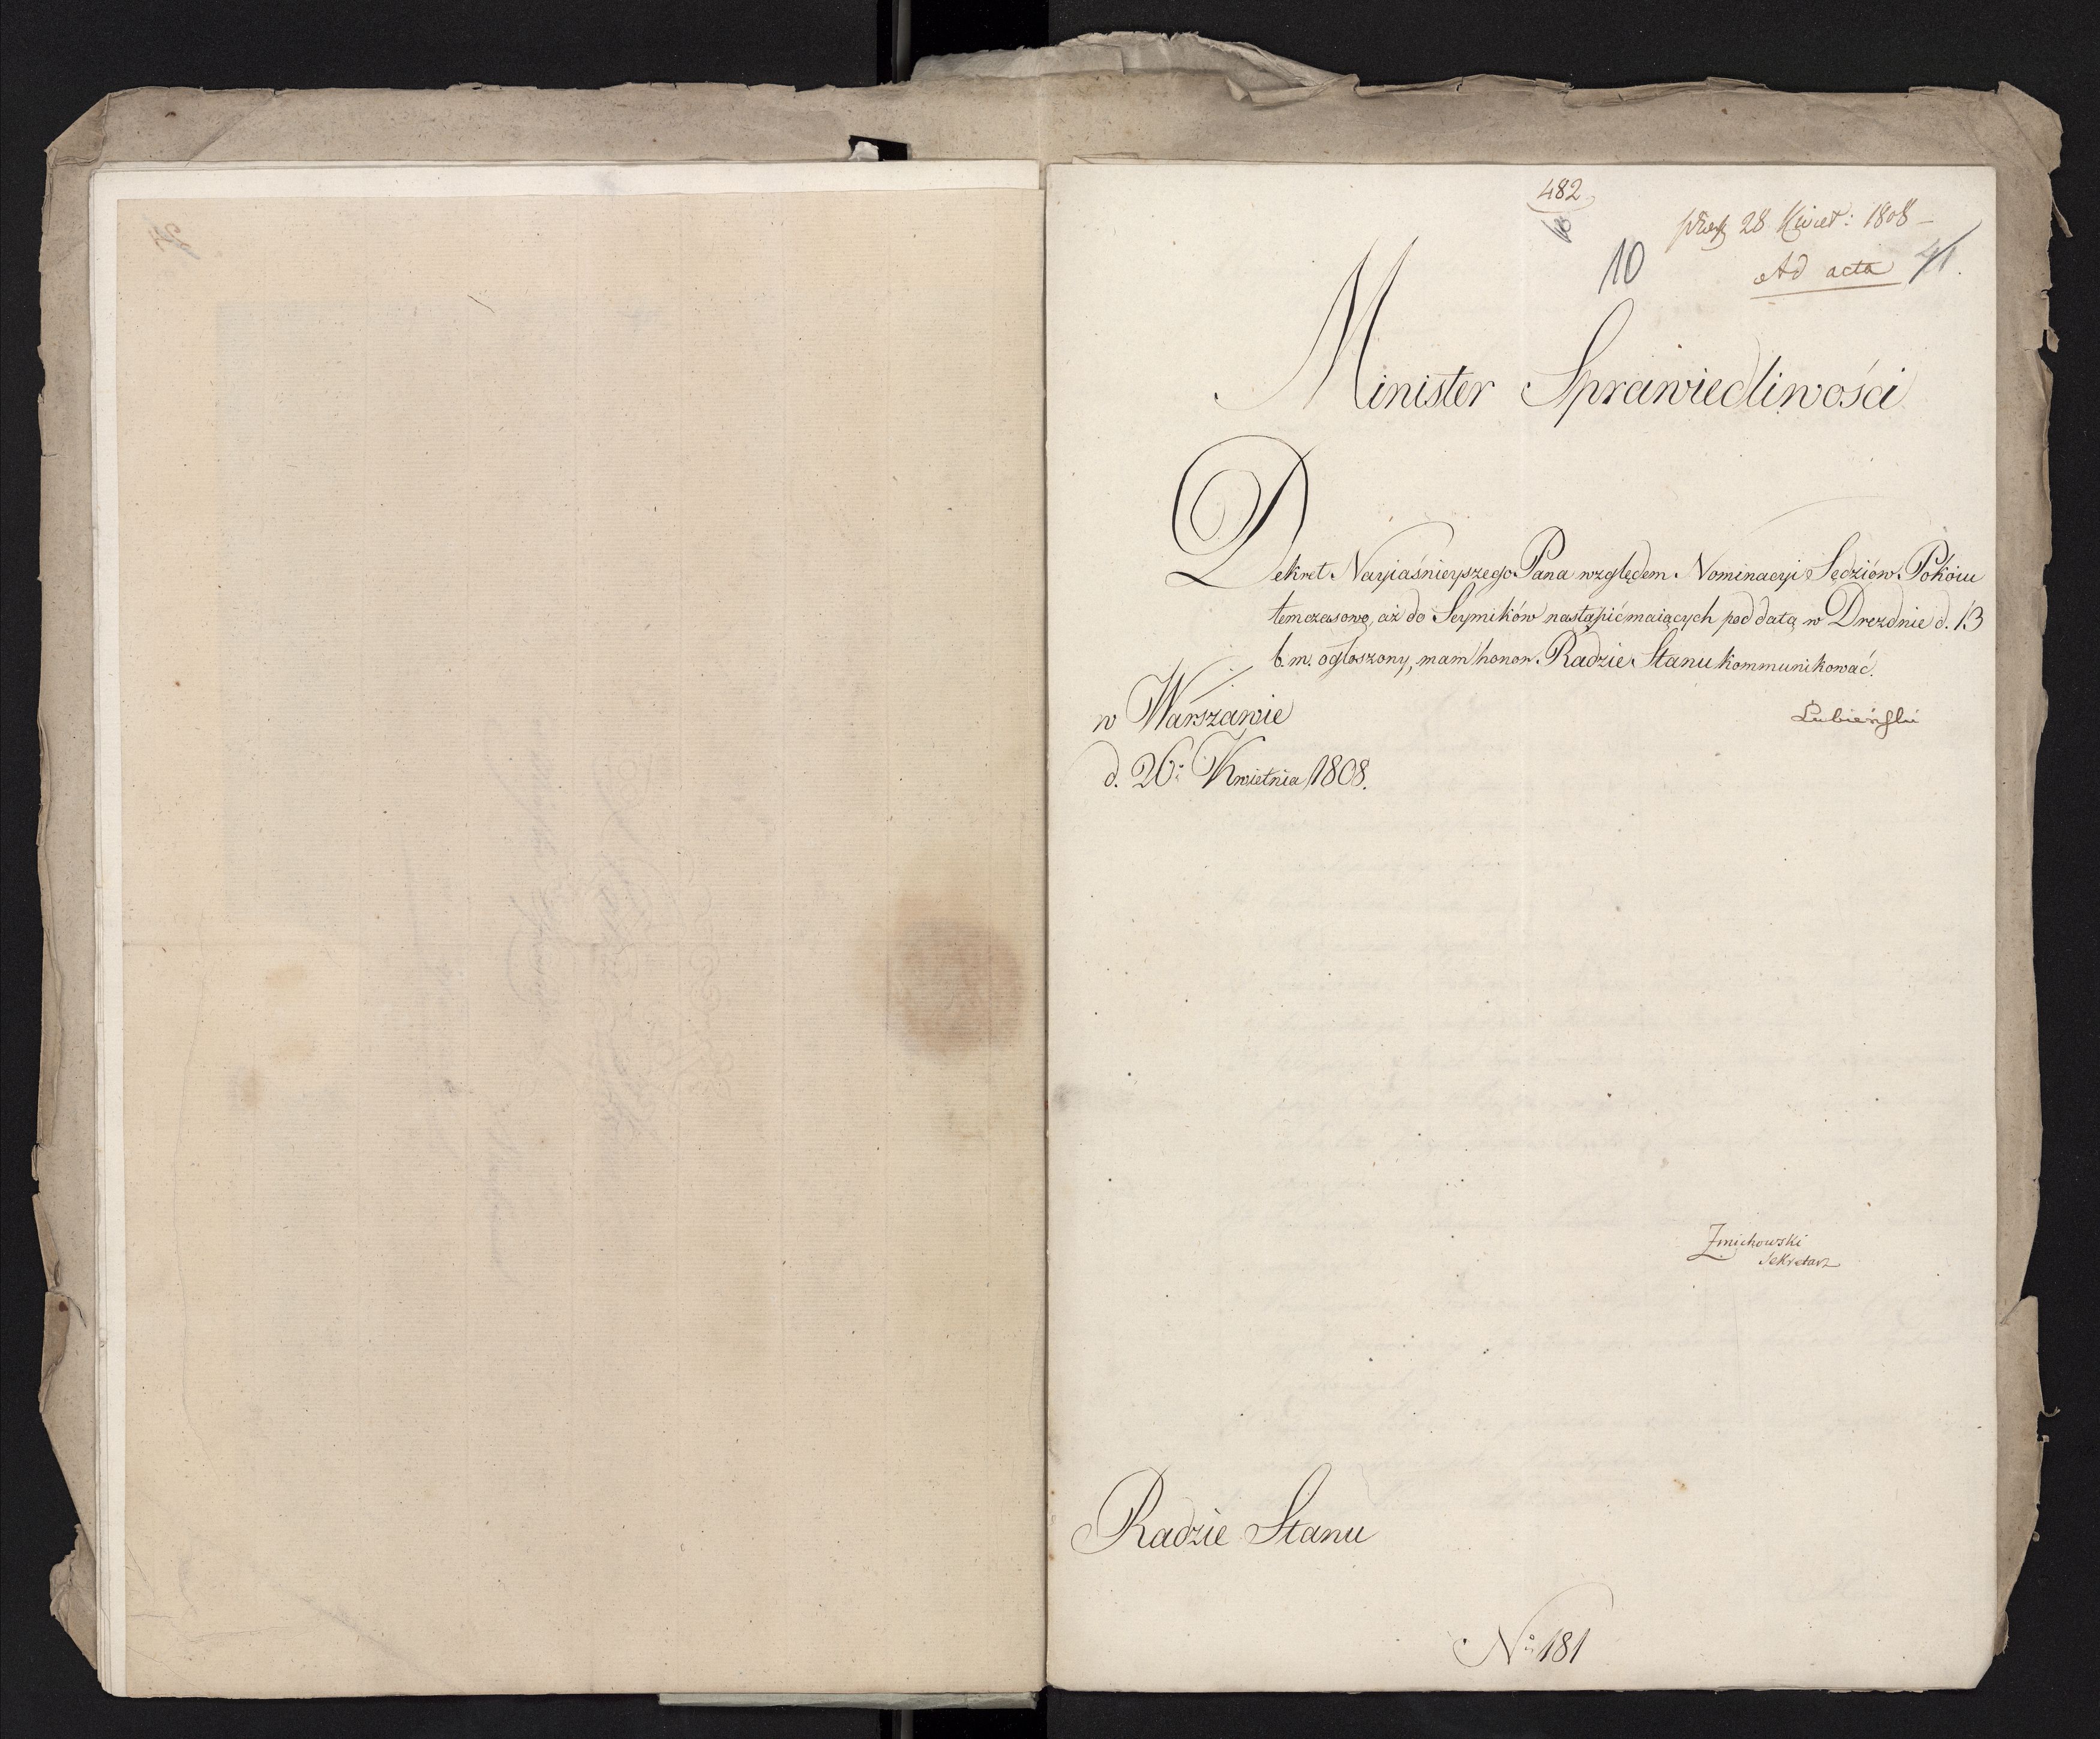 482
10
28 Kwiet: 1808 –
Ad acta 41.
Minister Sprawiedliwości
Dekret Nayiaśnieyszego Pana względem Nominacyi Sędziów Pokoiu
temczasowo, aż do Seymików nastąpić maiących pod datą w Dreznie d. 13
b. m. ogłoszony, mam honor Radzie Stanu kommunikować.
w Warszawie
Lubieński
d. 26. Kwietnia 1808.
Zmichowski
Sekretarz
Radzie Stanu
No 181